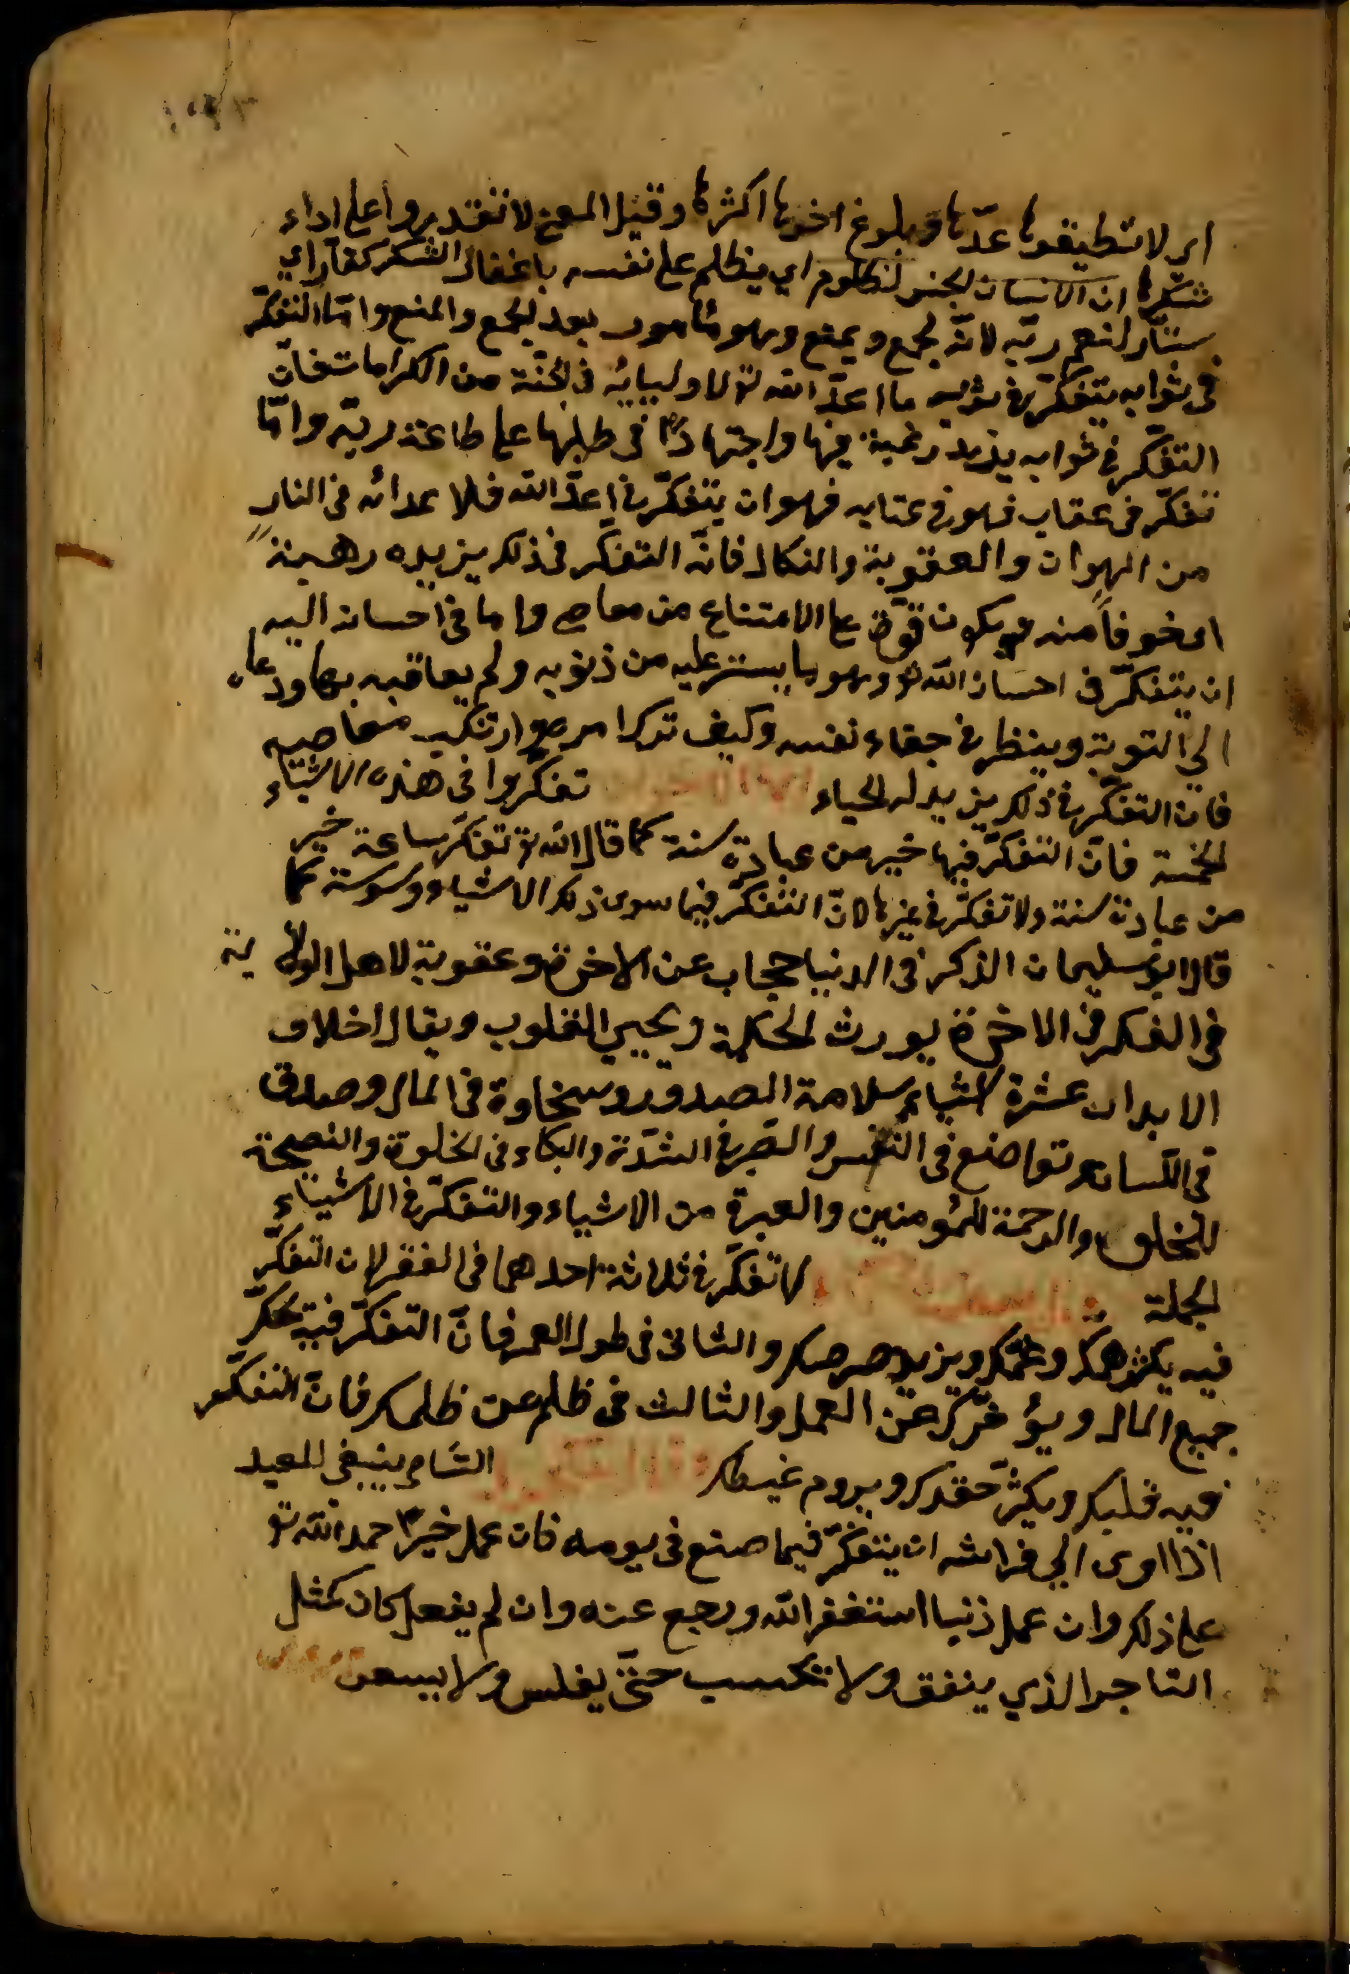 اى لا تطيقوها عدّها وبلوغ اخرها اكثرها وقيل المعنى لا تقدروا على اداء
شكرها ان الانسان الجنس لظلوم اي يظلم على نفسه باغفال الشكر كفّار اي
ستّار لنعم ربّه لانّه يجمع ويمنع وهو مأمور بعد الجمع والمنع وامّا التفكّر
فى ثوابه يتفكّر فى ما اعدّ الله تع لاوليائه فى الجنّة من الكرامات فانّ
التفكّر فى ثوابه يزيد رغبة فيها واجتهادا فى طلبها على طاعة ربّه وامّا
تفكّر فى عقاب فهو فى عتابه فهو ان يتفكّر فى اعدّ الله فلا عدائه فى النار
من الهوان والعقوبة والنكال فانّ التفكّر فى ذلك يزيده رهبة
اى خوفاً منه ويكون قوّة على الامتناع من معاصى واما فى احسانه اليه
ان يتفكّر فى احسان الله تع وهو ما يستر عليه من ذنوبه ولم يعاقبه بها ودعاه
الي التوبة وينظر فى جفاء نفسه وكيف ترك امر ارتكب معاصيه
فان التفكّر فى ذلك يزيد له الحياء تفكّروا فى هذه الاشياء
الخمسة فانّ التفكّر فيها خير من عبادة سنة كما قال الله تع تفكّر ساعة خير
من عبادة سنة ولا تفكّر فى غيرها لانّ التفكّر فيما سوى ذلك الاشياء وسوسة كما
قال ابو سليمان الذكر فى الدنيا حجاب عن الاخرة وعقوبة لاهل الولاية
فى الفكر فى الاخرة يورث الحكمة ويحيي القلوب ويقال اخلاق
الابدال عشرة اشياء سلامة الصدور وسخاوة فى المال وصدق
فى اللسان وتواضع فى النفس والصّبر فى الشدّة والبكاء فى الخلوة والنصيحة
للخلق والرحمة للمؤمنين والعبرة من الاشياء والتفكّر فى الاشياء
الجملة لا تفكّر فى ثلاثة احدهما فى الفقر لان التفكّر
فيه يكثر همّك وغمّك ويزيد حرصك والثانى فى طول العمر فانّ التفكّر فيه يحبّك
جميع المال ويؤخّرك عن العمل والثالث فى ظلم من ظلمك فانّ التفكّر
فيه قلبك ويكثّر حقدك ويروم غيظك السّام ينبغى للعبد
اذا اوى الي فراشه ان يتفكّر فيما صنع فى يومه فان عمل خيرا حمد الله تع
على ذلك وان عمل ذنبا استغفر الله ورجع عنه وان لم يفعل كان كمثل
التاجر الذي ينفق ولا تكسب حتّى يفلس ولا يسعى